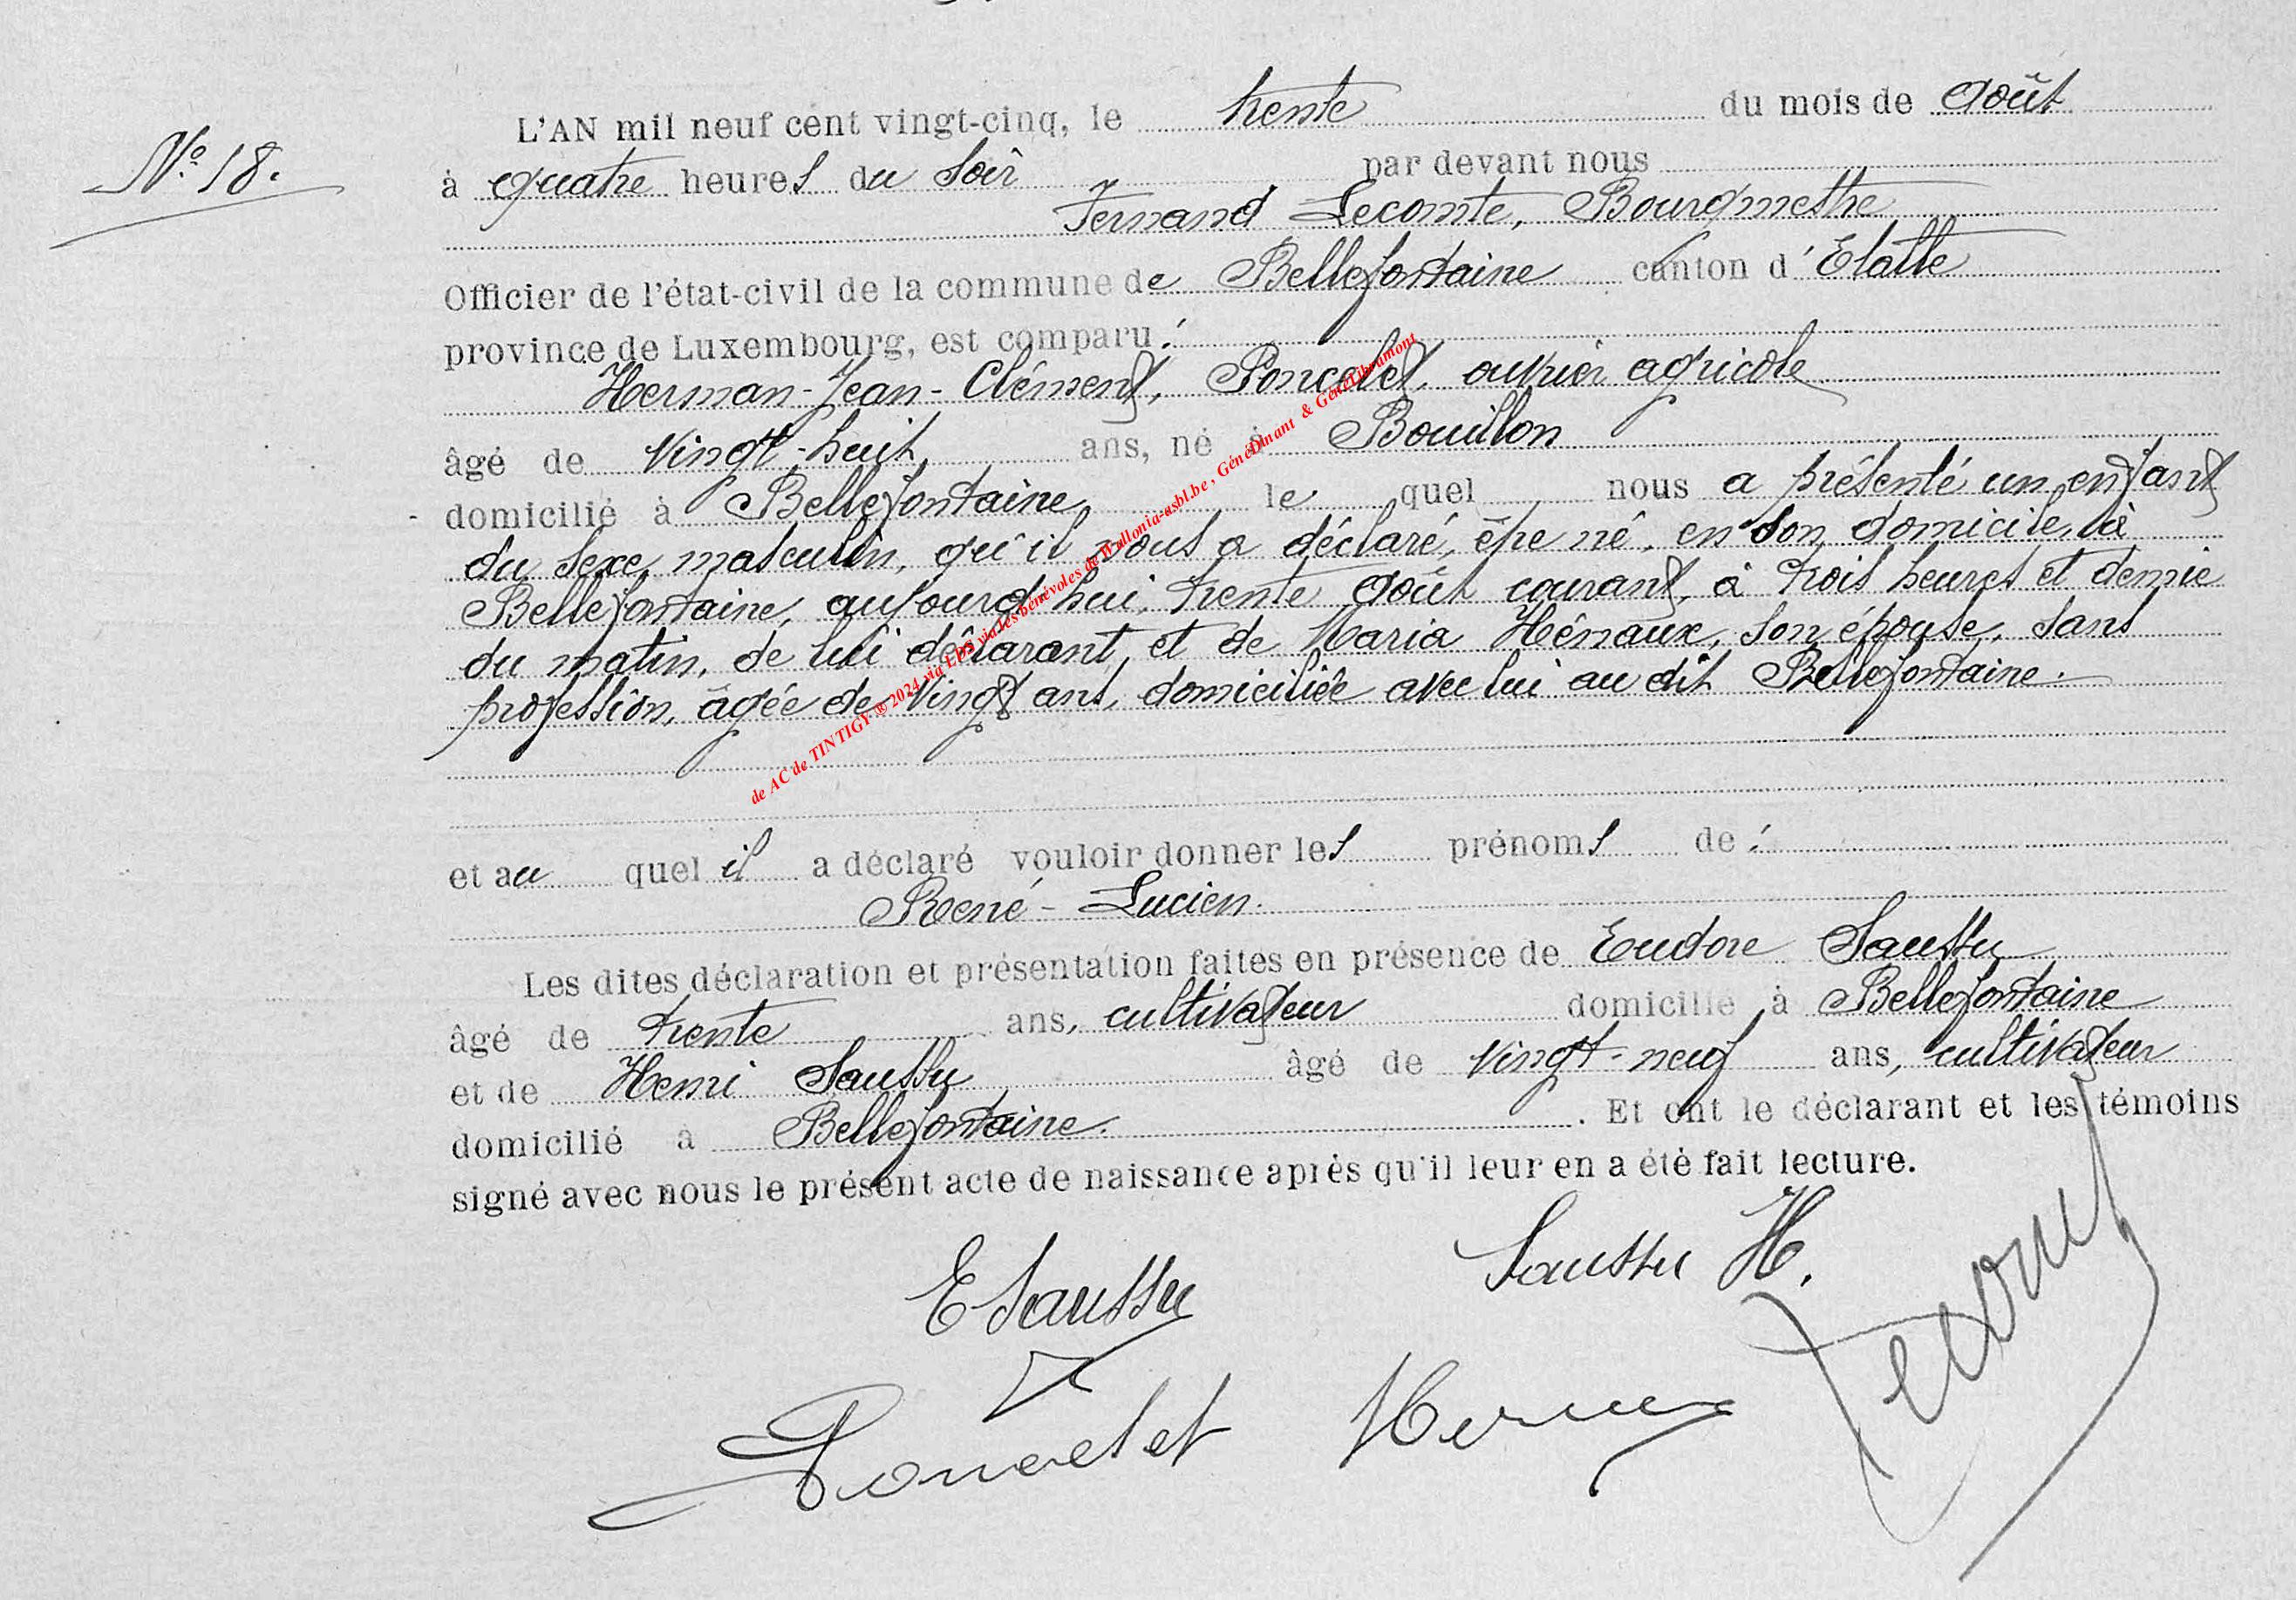 L'AN mil neuf cent vingt-cinq, le trente du mois de Août
N° 18.
à quatre heures du soir par devant nous
Fernand Lecomte, Bourgmestre
Officier de l'état-civil de la commune de Bellefontaine canton d'Etalle
province de Luxembourg, est comparu :
Herman-Jean-Clément, Poncelet, ouvrier agricole
âgé de vingt-huit ans, né à Bouillon
domicilié à Bellefontaine lequel nous a présenté un enfant
du sexe masculin, qu'il nous a déclaré, être né, en son domicile, à
Bellefontaine, aujourd'hui, trente août courant, à trois heures et demie
du matin, de lui déclarant et de Maria Hénaux, son épouse, sans
profession, âgée de vingt ans, domiciliée avec lui au dit Bellefontaine.
et au quel il a déclaré vouloir donner les prénoms de :
René-Lucien.
Les dites déclaration et présentation faites en présence de Eudore Saussu
âgé de trente ans, cultivateur domicilié à Bellefontaine
et de Henri Saussu âgé de vingt-neuf ans, cultivateur
domicilié à Bellefontaine. Et ont le déclarant et les témoins
signé avec nous le présent acte de naissance après qu'il leur en a été fait lecture.
E Saussu Saussu H.
Poncelet Herman
de AC de TINTIGY ® 2024 via LDS via les bénévoles de Wallonia-asbl.be , GénéDinant & GénéLibramont